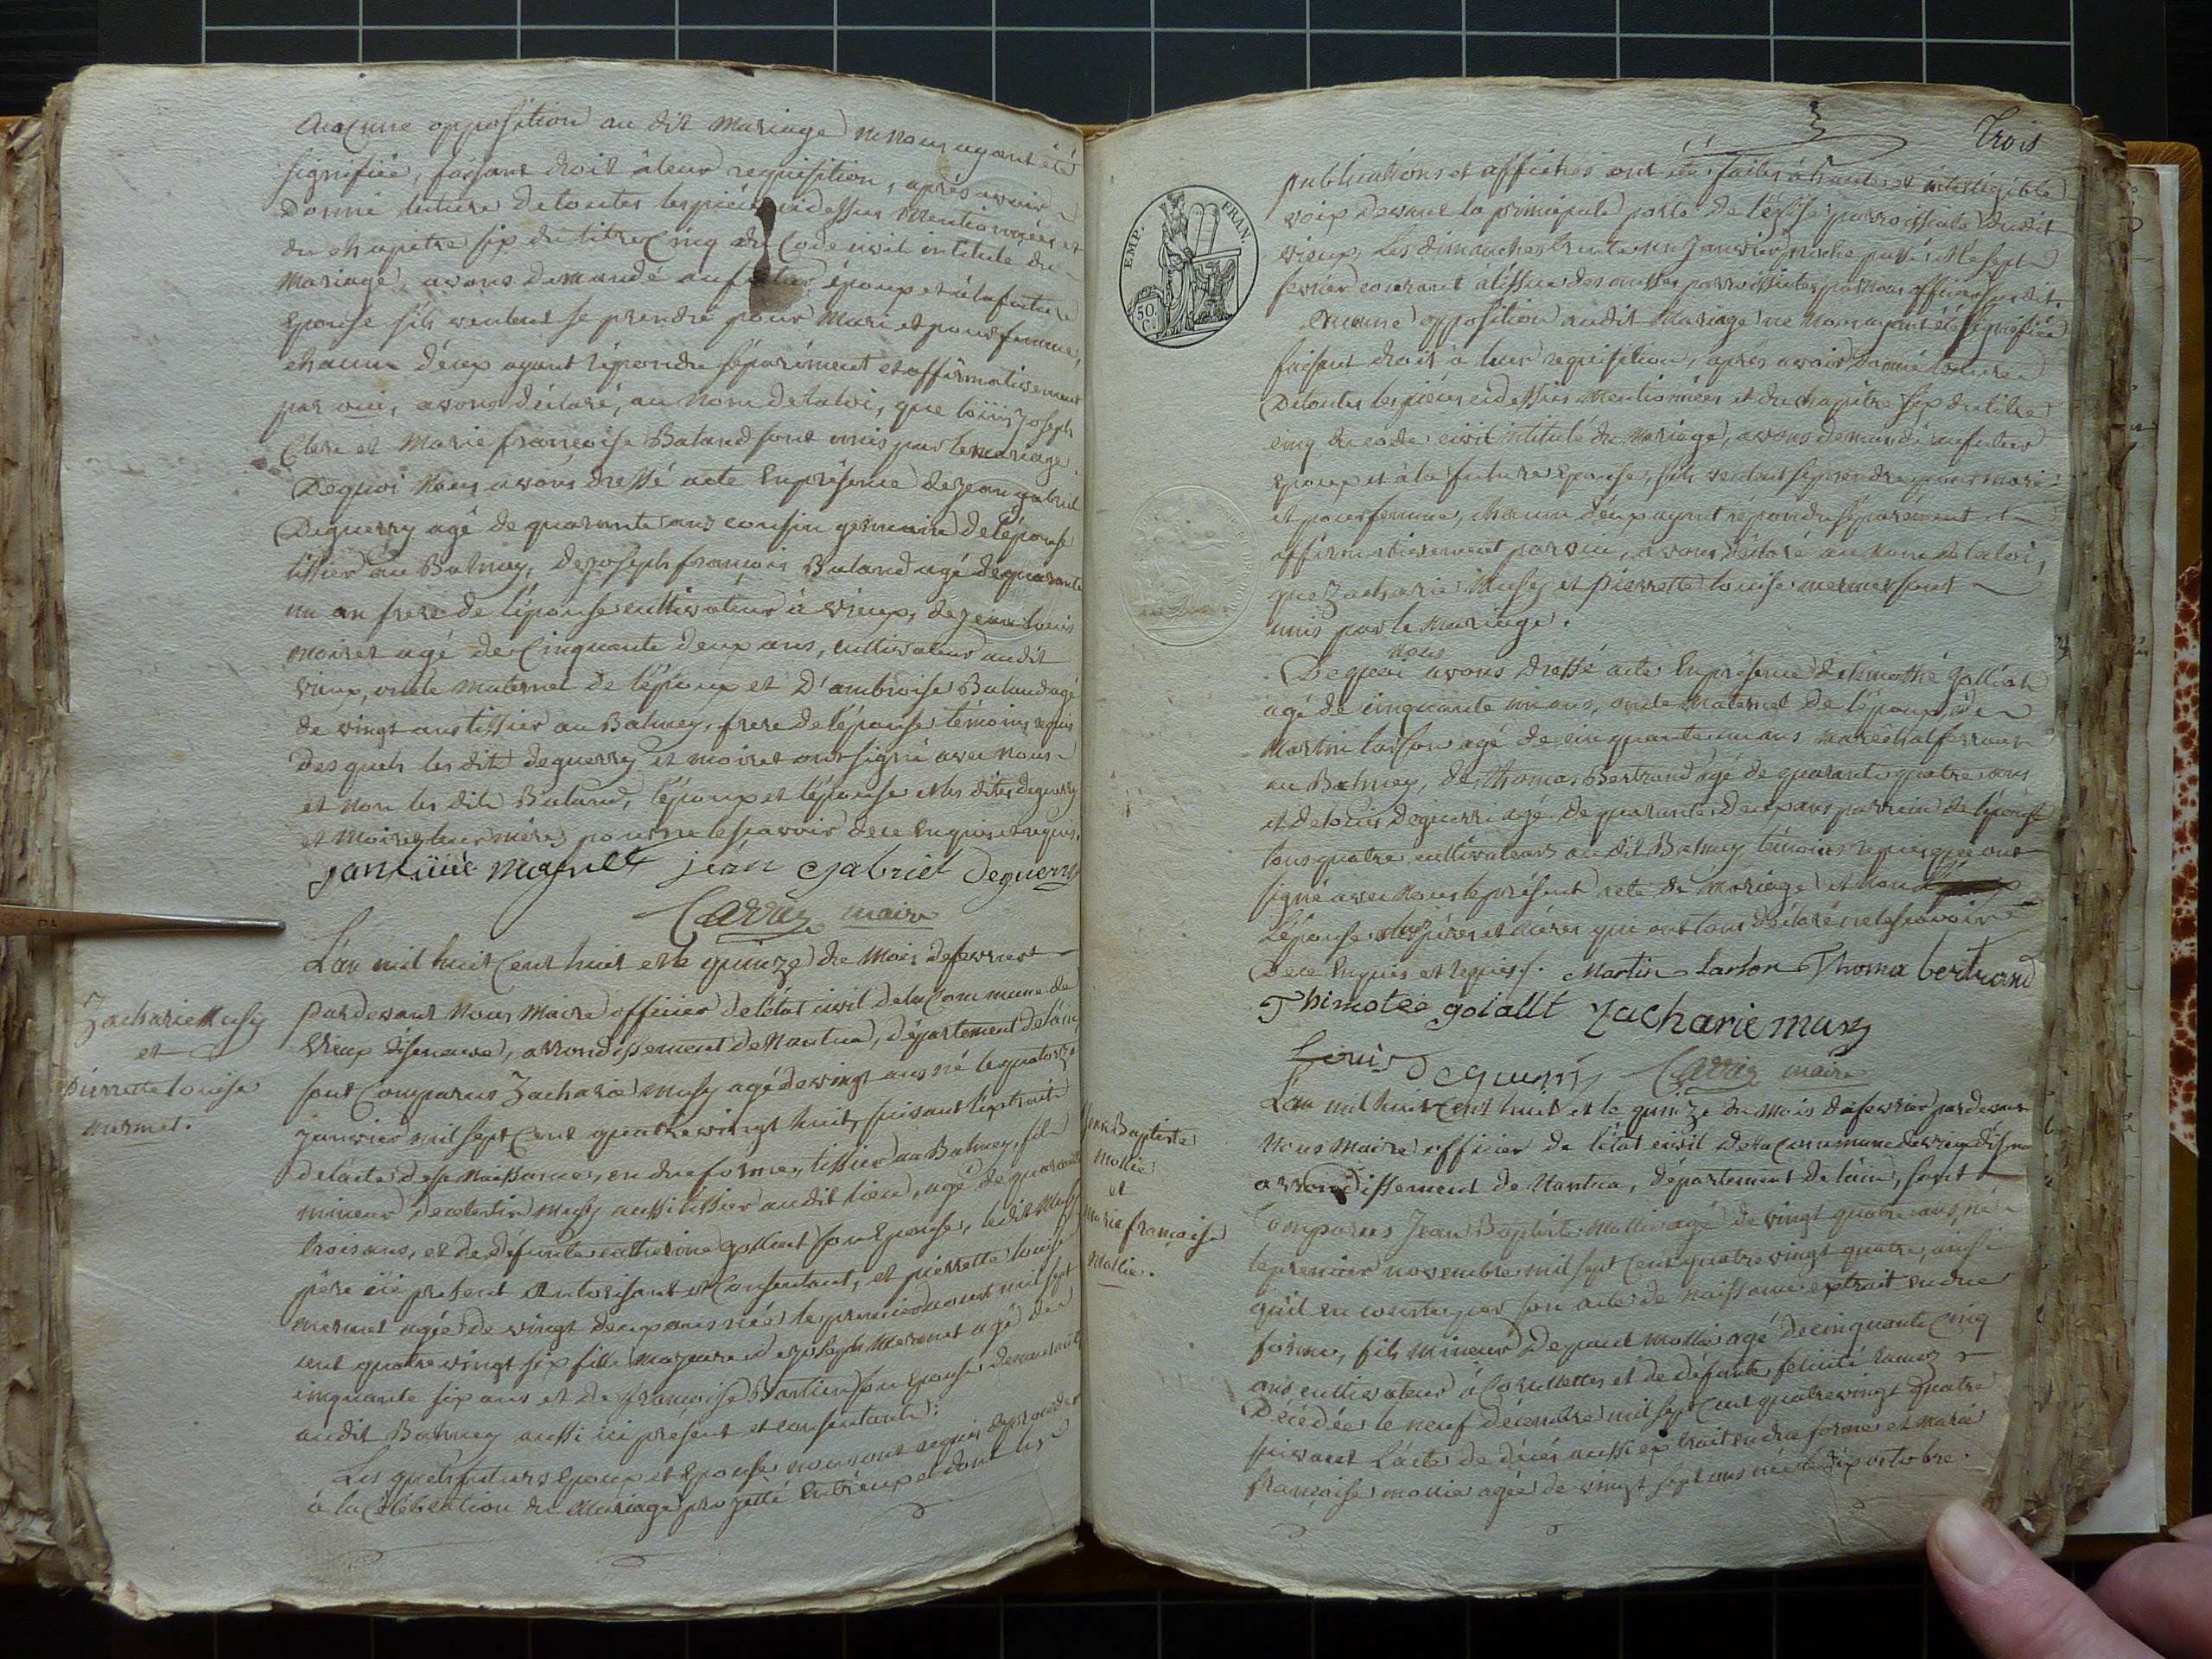 Aucune opposition au dit mariage ne nous ayant été
signifiée, faisant droit à leur requisition, après avoir
donné lecture de toutes les pièces ci dessus mentionnées et
du chapitre six du titre Cinq du Code civil intitulé du
Mariage, avons demandé au futur époux et à la future
Epouse s'ils veulent se prendre pour Mari et pour femme,
chacun d'eux ayant répondu séparément et affirmativement
par oui, avons déclaré, au nom de la loi, que Joseph
Clerc et Marie françoise Baland sont unis par le mariage.
De quoi Nous avons dressé acte En présence de jean gabriel
Deguerry agé de quarante ans cousin germain de l'épouse
tissier au Balmay, de joseph françois Baland agé de quarante
un an frere de l'épouse cultivateur à vieux, de jean louis
moiret agé de Cinquante deux ans, cultivateur audit
vieux, oncle maternel de l'époux et d'ambroise Baland agé
de vingt ans tissier au Balmay, frere de l'épouse témoins requis
des quels les dits deguerry et moiret ont signé avec nous
et non les dits Baland, l'époux et l'épouse et les dites deguerry
et Moiret leur mères pour ne le scavoir de ce Enquis et requis.
jean gabriel Deguerry
Carrier maire
Zacharie Musy
et
pierrette louise
mermet.
L'an mil huit Cent huit et le quinze du Mois de fevrier
Pardevant Nous Maire officier de l'état civil de la Commune de
Vieux d'isenave, arrondissement de Nantua, département de l'ain,
sont Comparus Zacharie Musy agé de vingt ans né le quatorze
janvier mil sept Cent quatre vingt huit, suivant l'extrait
de l'acte de sa Naissance, en due forme, tissier au Balmay, fils
mineur de celestin Musy aussi tissier audit lieu, agé de quarante
trois ans, et de défunte catherine golliat son Epouse, ledit Musy
père ici présent Autorisant et Consentant, et pierrette louise
mermet agée de vingt deux ans née le premier aout mil sept
cent quatre vingt six fille Majeure de joseph Mermet agé de
cinquante six ans et de françoise Bastien son Epouse demeurant
audit Balmay aussi ici présent et consentants;
Les quels futurs Epoux et Epouse nous ont requis de procéder
à la Célébration du Mariage projetté Entr'eux et dont les
3
Trois
EMP. FRAN.
50 C.
publications et affiches ont été faites à haute et intelligible
voix devant la principale porte de l'église parroissiale dudit
vieux, les dimanches trente un janvier proche passé et le sept
fevrier courant à l'issue des messes parroissiales par nous officier susdit.
Aucune opposition audit Mariage ne Nous ayant été signifiée
faisant droit à leur requisition, après avoir donné lecture
De toutes les pièces ci dessus Mentionnées et du chapitre six du titre
cinq du code civil intitulé du Mariage, avons demandé au futur
Epoux et à la future Epouse, s'ils veulent se prendre pour mari
et pour femme, chacun d'eux ayant répondu séparément et
affirmativement par oui, avons déclaré au nom de la loi,
que Zacharie Musy et Pierrette louise mermet sont
unis par le Mariage.
De quoi nous avons dressé acte En présence de timothé golliat
agé de cinquante un ans, oncle maternel de l'époux, de
Martin larson agé de cinquante un ans maréchal ferrant
au Balmay, de thomas Bertrand agé de quarante quatre ans
et de louis deguerri agé de quarante deux ans parrain de l'épouse
tous quatre cultivateurs au dit Balmay témoins requis qui ont
signé avec Nous le présent acte de Mariage et non
l'épouse, les pères et mères qui ont tous déclaré ne le scavoir
De ce Enquis et requis. Martin larson Thoma bertrand
Thimotée golallt Zacharie musy
Louis Deguerry Carrier maire
Jean Baptiste
Mollie
et
Marie françoise
Mollie.
L'an mil huit Cent huit et le quinze du Mois de fevrier pardevant
Nous Maire officier de l'état civil de la Commune de vieux d'isenave
arrondissement de Nantua, département de l'ain, sont
Comparus Jean Baptiste Mollie agé de vingt quatre ans, né
le premier novembre mil sept Cent quatre vingt quatre, ainsi
qu'il en conste par son acte de naissance extrait en due
forme, fils Mineur De paul Mollie agé de cinquante Cinq
ans cultivateur à Corcellettes et de défunte felicité
Décédée le neuf décembre mil sept Cent quatre vingt quatre
suivant l'acte de décès aussi extrait en due forme et Marie
françoise mollie agée de vingt sept ans née le dix octobre.